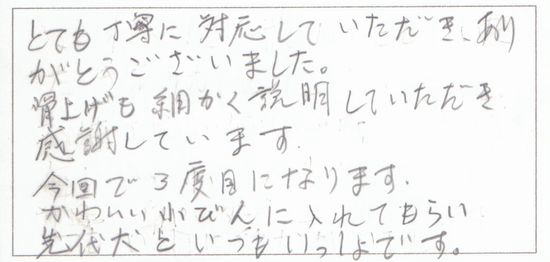 とても丁寧に対応していただき、あり
がとうございました。
骨上げも細かく説明していただき
感謝しています。
今回で3度目になります。
かわいい小びんに入れてもらい
先代犬といつもいっしょです。